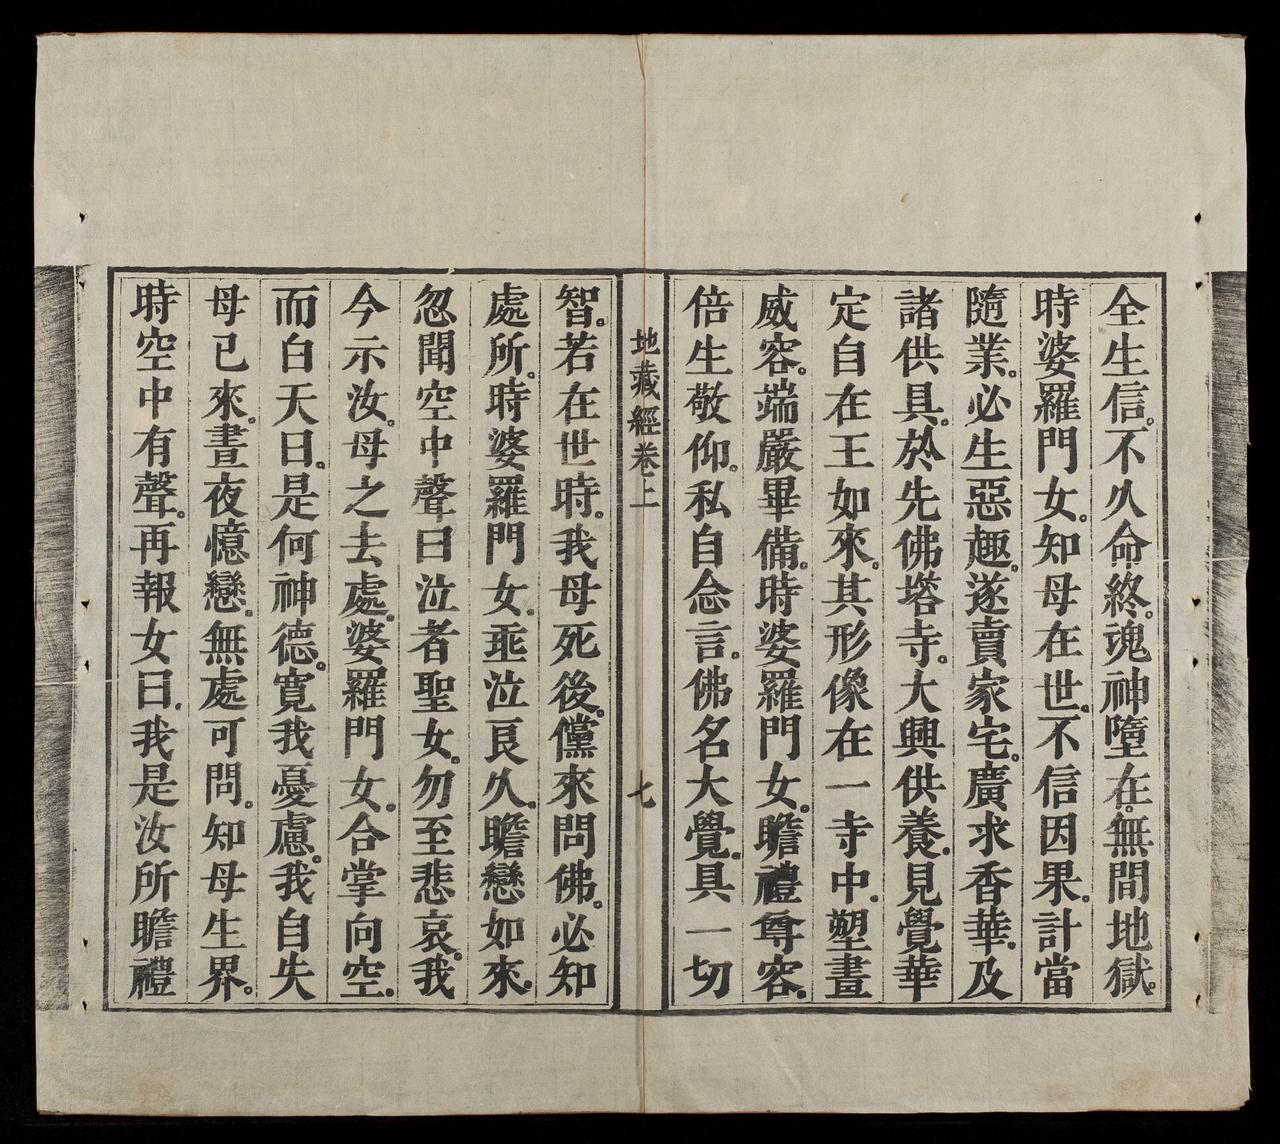 全生信。不久命終。魂神墮在。無間地獄。
時婆羅門女。知母在世。不信因果。計當
隨業。必生惡趣。遂賣家宅。廣求香華。及
諸供具。於先佛塔寺。大興供養。見覺華
定自在王如來。其形像在一寺中。塑畫
威容。端嚴畢備。時婆羅門女。瞻禮尊容。
倍生敬仰。私自念言。佛名大覺。具一切
地藏經卷上
七
智。若在世時。我母死後。儻來問佛。必知
處所。時婆羅門女。垂泣良久。瞻戀如來。
忽聞空中聲曰泣者聖女。勿至悲哀。我
今示汝。母之去處。婆羅門女。合掌向空。
而白天曰。是何神德。寬我憂慮。我自失
母已來。晝夜憶戀。無處可問。知母生界。
時空中有聲。再報女曰。我是汝所瞻禮